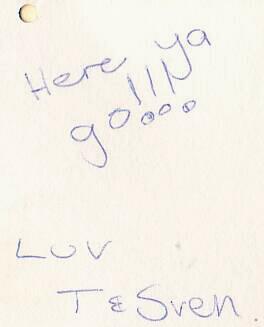 Here ya
go!!!!
Luv
T & Sven